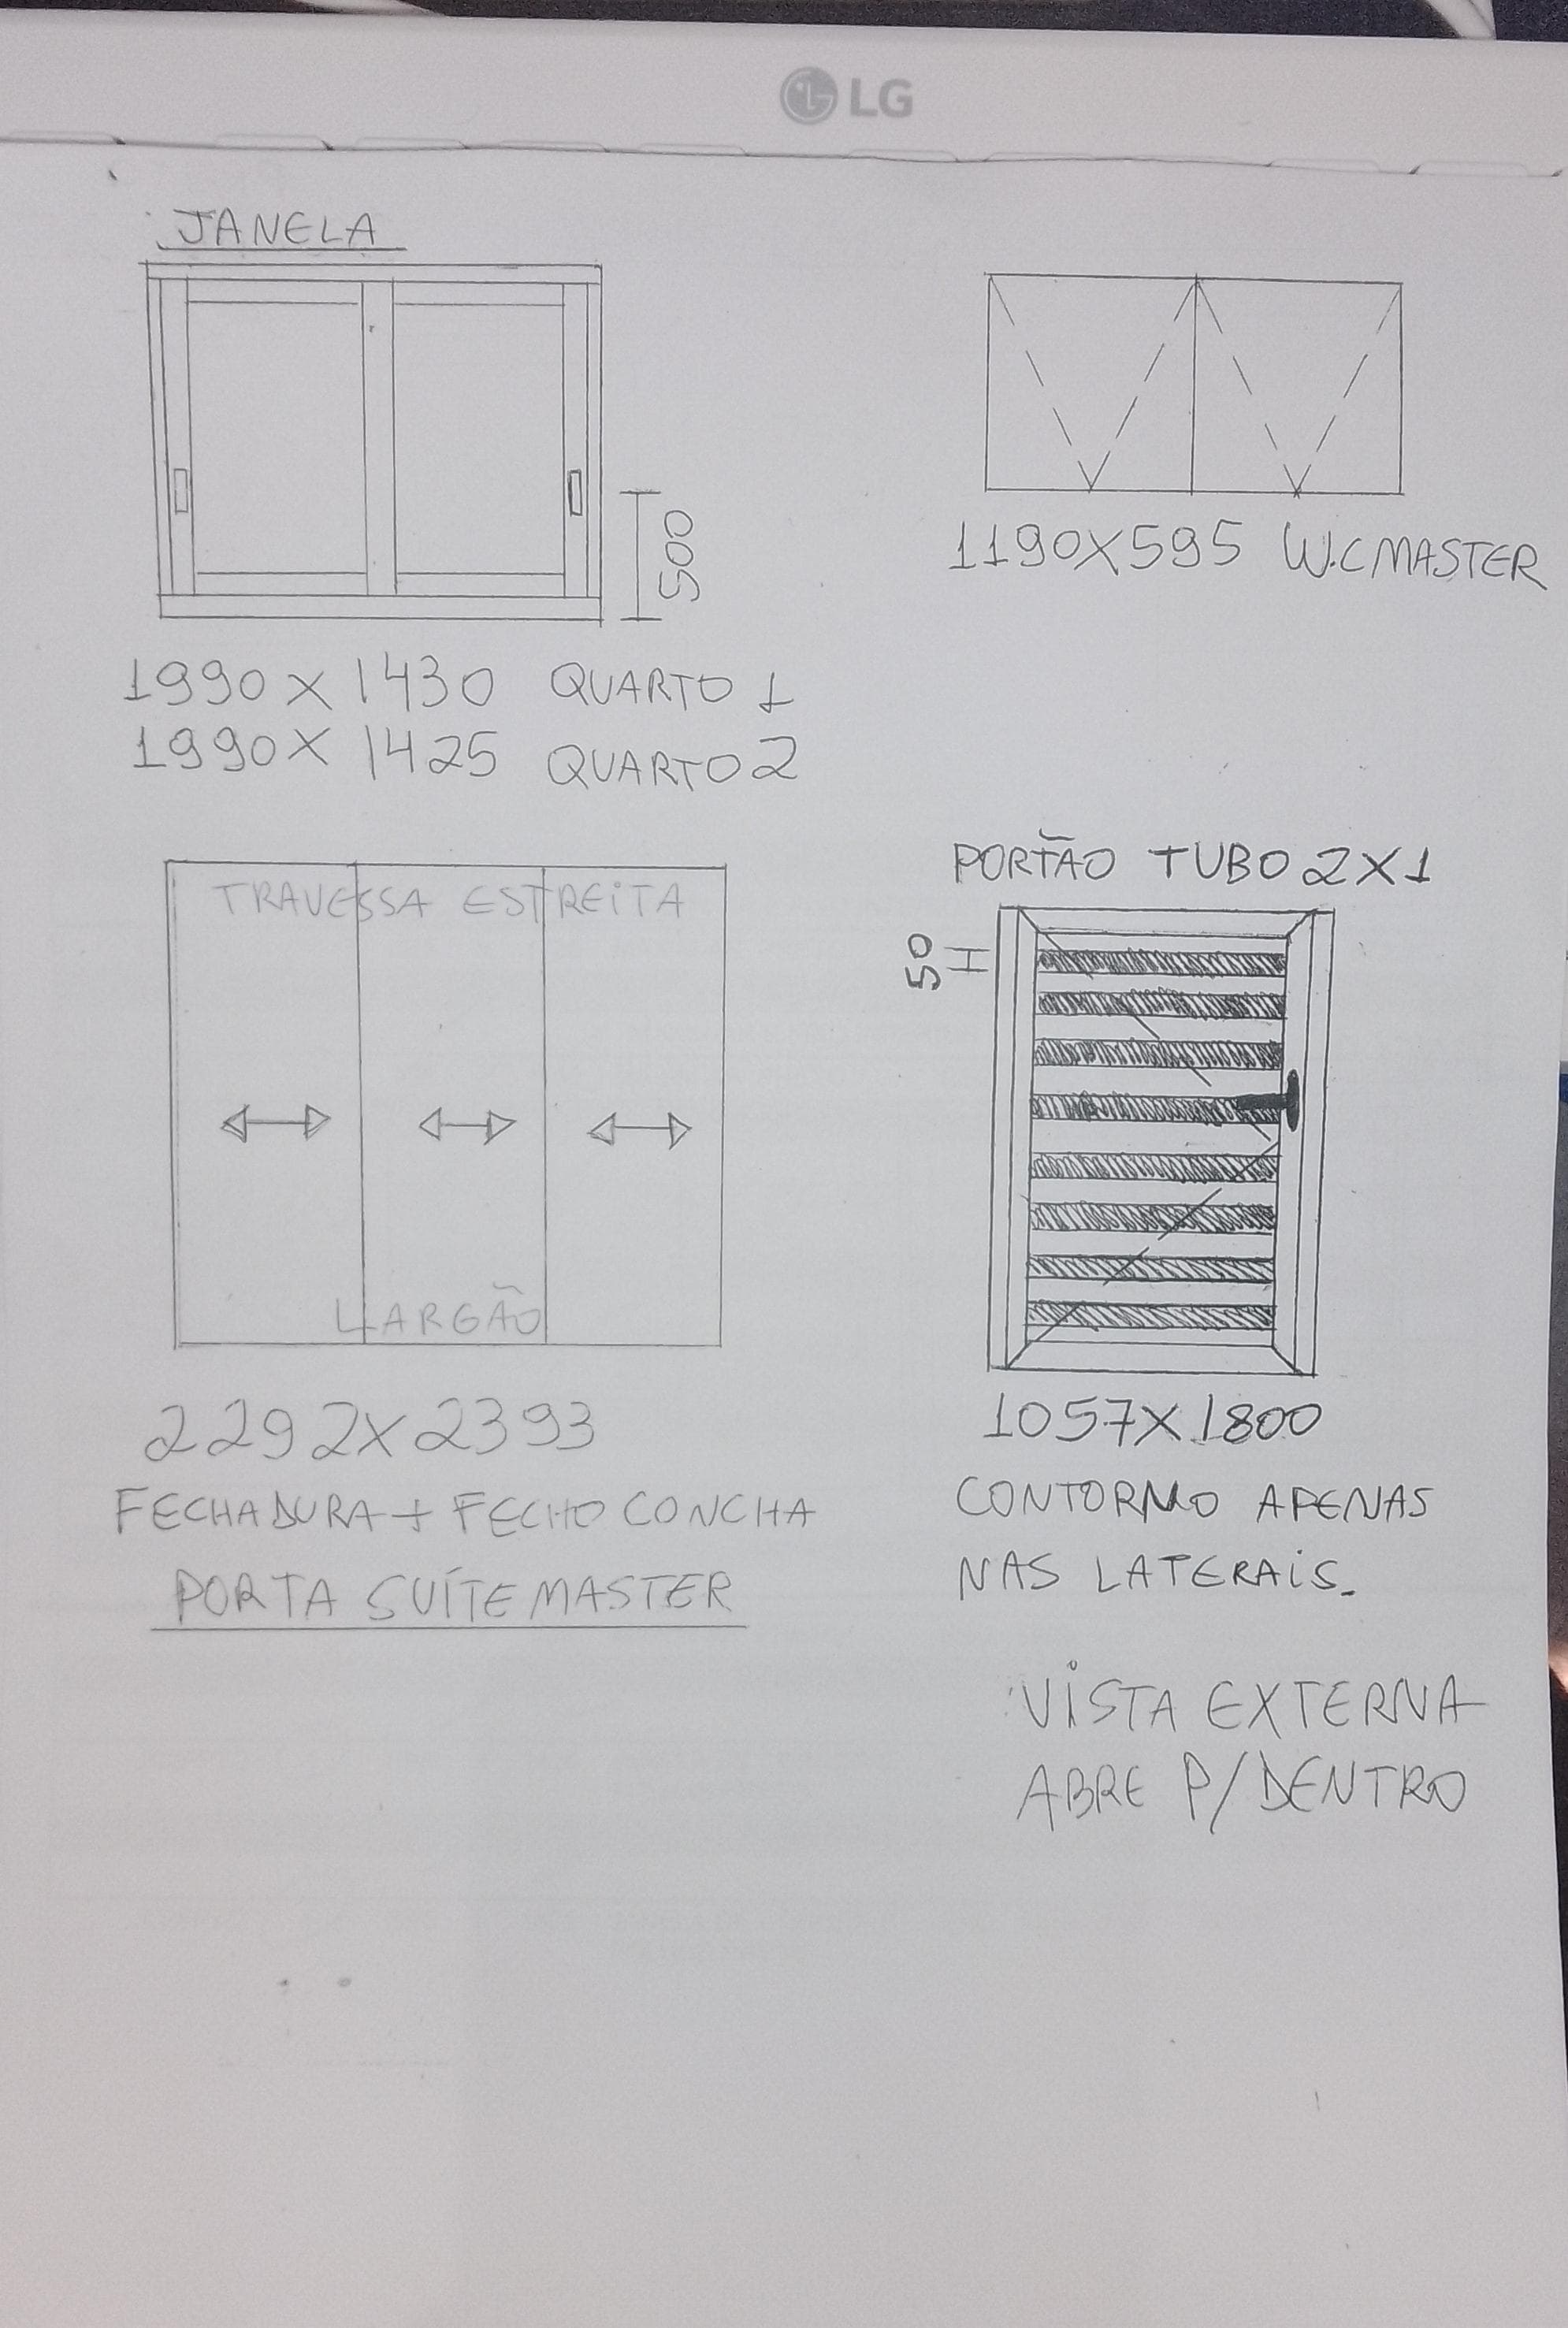 LG
JANELA
500
1990 X 1430 QUARTO 1
1990 X 1425 QUARTO 2
1190X595 W.C MASTER
TRAVESSA ESTREITA
LARGÃO
2292X2393
FECHADURA + FECHO CONCHA
PORTA SUÍTE MASTER
PORTÃO TUBO 2X1
50
1057X1800
CONTORNO APENAS
NAS LATERAIS.
VISTA EXTERNA
ABRE P/DENTRO